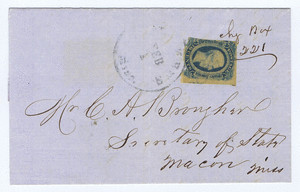 Chg Box
221
Mr. C. A. Brougher
Secretary of State
Macon Miss